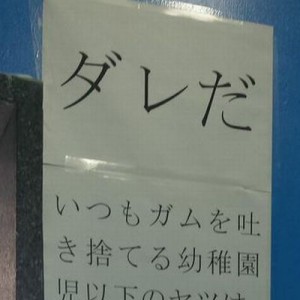 ダレだ
いつもガムを吐
き捨てる幼稚園
児以下のヤツは